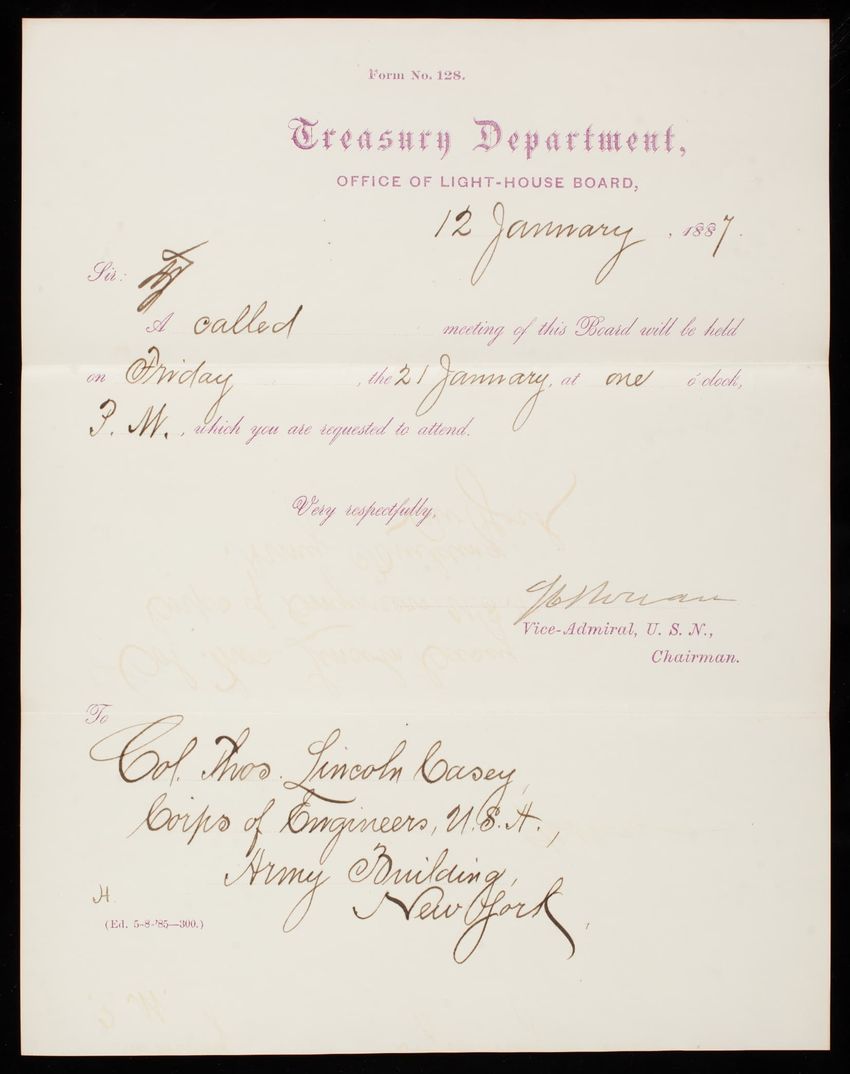 Form No. 128.
Treasury Department,
OFFICE OF LIGHT-HOUSE BOARD,
12 January, 1887.
Sir:
A called meeting of this Board will be held
on Friday, the 21 January, at one o'clock,
P. M., which you are requested to attend.
Very respectfully,
Vice-Admiral, U. S. N.,
Chairman.
To
Col. Thos. Lincoln Casey,
Corps of Engineers, U.S.A.,
Army Building,
New York
H.
(Ed. 5-8-'85—300.)